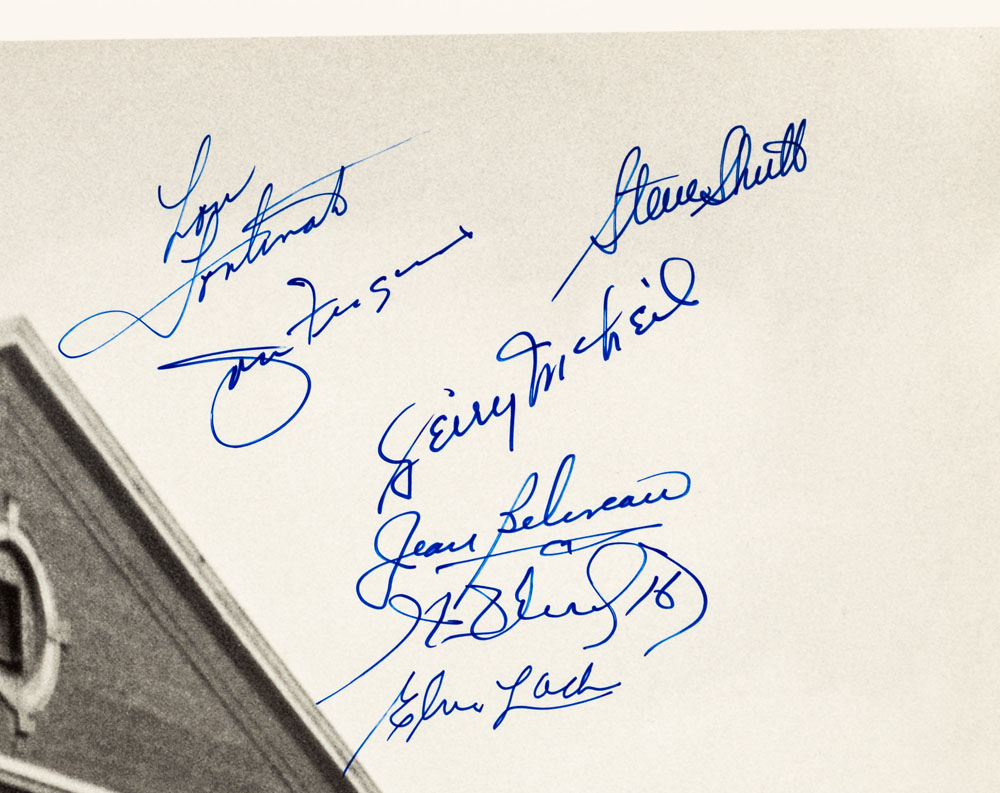 Lou
Fontinato
Steve Shutt
John Ferguson
Gerry McNeil
Jean Beliveau
H. Richard 16
Elmer Lach